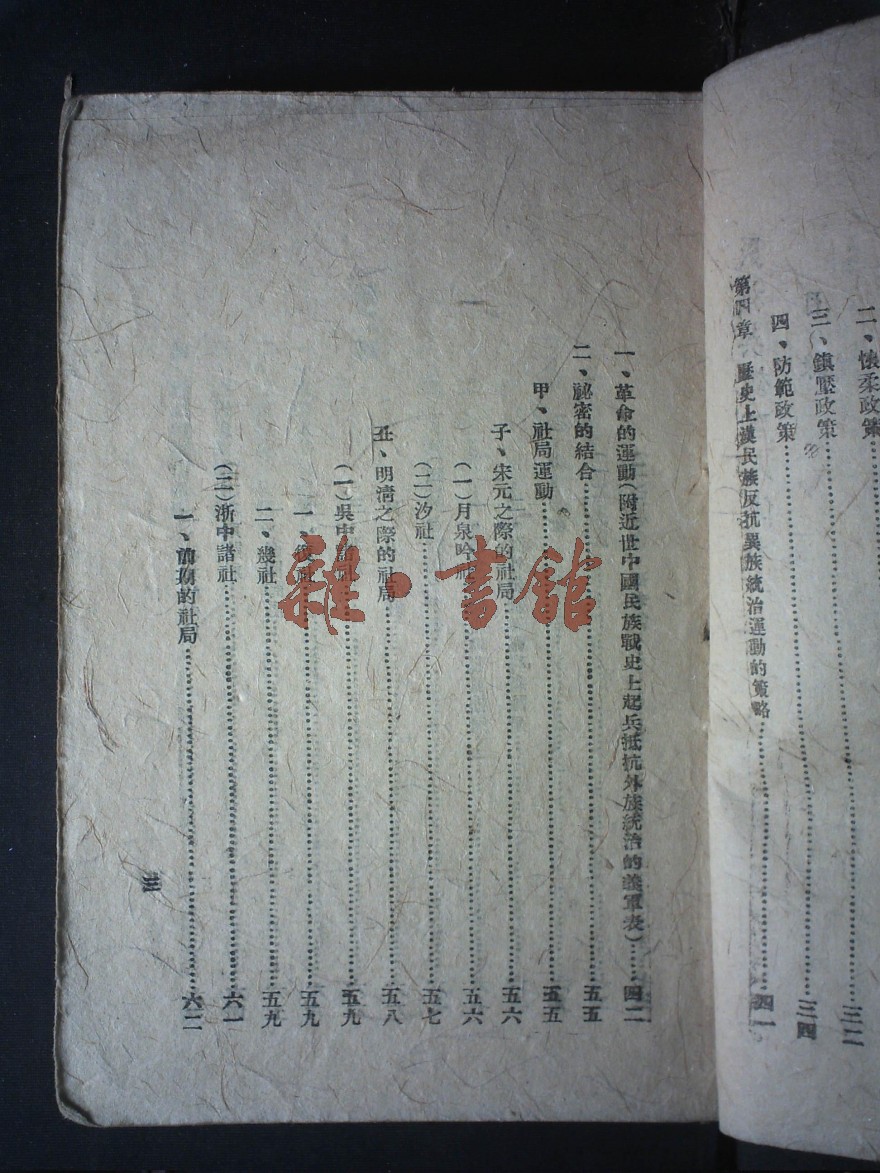 二、懷柔政策……三二
三、鎮壓政策……三四
四、防範政策
第四章 歷史上漢民族反抗異族統治運動的策略……四一
一、革命的運動(附近世中國民族戰史上起兵抵抗外族統治的義軍表)……四二
二、祕密的結合……五五
甲、社局運動……五五
子、宋元之際的社局……五六
(一)月泉吟社……五六
(二)汐社……五七
丑、明清之際的社局……五八
(一)吳中諸社……五九
一、復社……五九
二、幾社……五九
(二)浙中諸社……六一
一、前期的社局……六二
三
雜·書館